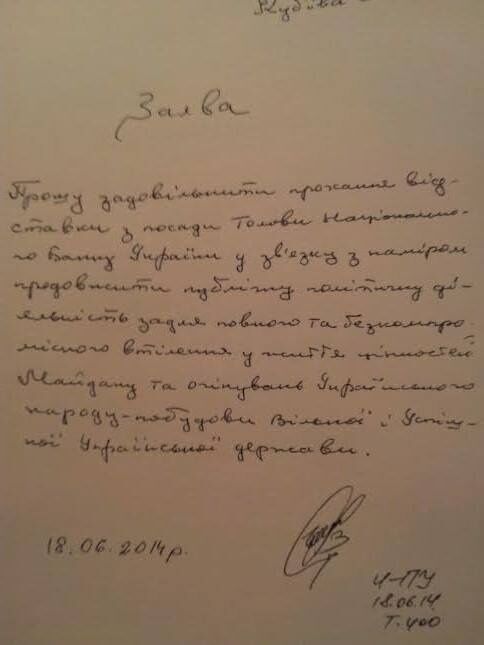 Кубіва
Заява
Прошу задовільнити прохання від-
ставки з посади Голови Національно-
го Банку України у зв'язку з наміром
продовжити публічну політичну ді-
яльність задля повного та безкомпро-
місного втілення у життя цінностей
Майдану та очікувань Українського
народу - побудови Вільної і Успіш-
ної Української держави.
18.06.2014р.
18.06.14